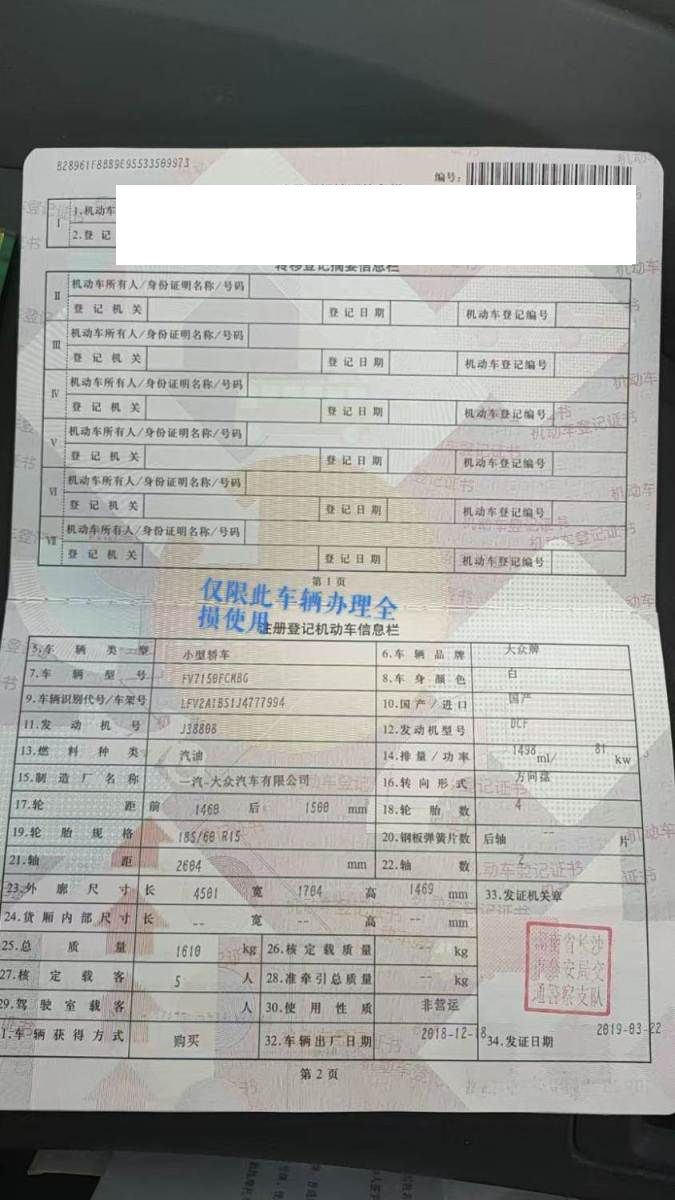 B28961F8BB9E95533509973
编号:
I
1.机动车
2.登记
转移登记摘要信息栏
II 机动车所有人/身份证明名称/号码
登记机关 登记日期 机动车登记编号
III 机动车所有人/身份证明名称/号码
登记机关 登记日期 机动车登记编号
IV 机动车所有人/身份证明名称/号码
登记机关 登记日期 机动车登记编号
V 机动车所有人/身份证明名称/号码
登记机关 登记日期 机动车登记编号
VI 机动车所有人/身份证明名称/号码
登记机关 登记日期 机动车登记编号
VII 机动车所有人/身份证明名称/号码
登记机关 登记日期 机动车登记编号
第1页
仅限此车辆办理全
损使用
注册登记机动车信息栏
5.车辆类型 小型轿车 6.车辆品牌 大众牌
7.车辆型号 FV7150FCMBG 8.车身颜色 白
9.车辆识别代号/车架号 LFV2A1BS1J4777994 10.国产/进口 国产
11.发动机号 J38808 12.发动机型号 DCF
13.燃料种类 汽油 14.排量/功率 1498 ml/ 81 kw
15.制造厂名称 一汽-大众汽车有限公司 16.转向形式 方向盘
17.轮距 前 1460 后 1500 mm 18.轮胎数 4
19.轮胎规格 185/60 R15 20.钢板弹簧片数 后轴 -- 片
21.轴距 2604 mm 22.轴数 2
23.外廓尺寸 长 4501 宽 1704 高 1469 mm 33.发证机关章
24.货厢内部尺寸 长 -- 宽 -- 高 -- mm
25.总质量 1610 kg 26.核定载质量 -- kg
27.核定载客 5 人 28.准牵引总质量 -- kg
29.驾驶室载客 -- 人 30.使用性质 非营运
1.车辆获得方式 购买 32.车辆出厂日期 2018-12-18 34.发证日期 2019-03-22
湖南省长沙
市公安局交
通警察支队
第2页